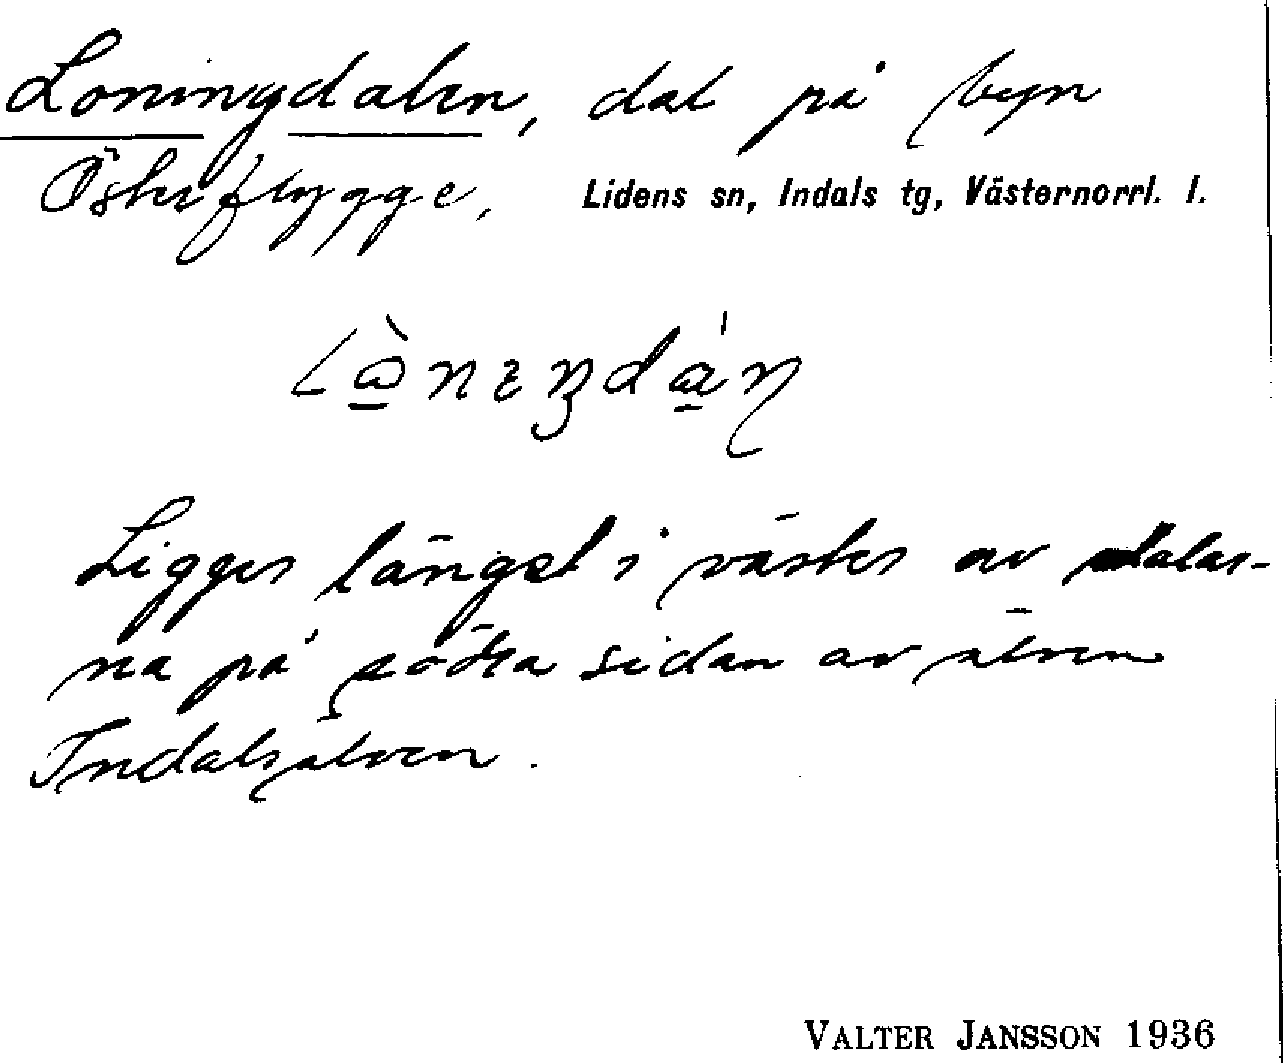 Loningdalen, dal på byn
Österflygge, Lidens sn, Indals tg, Västernorrl. l.
Ligger längst i väster av dalar-
na på södra sidan av älven
Indalsälven.
VALTER JANSSON 1936